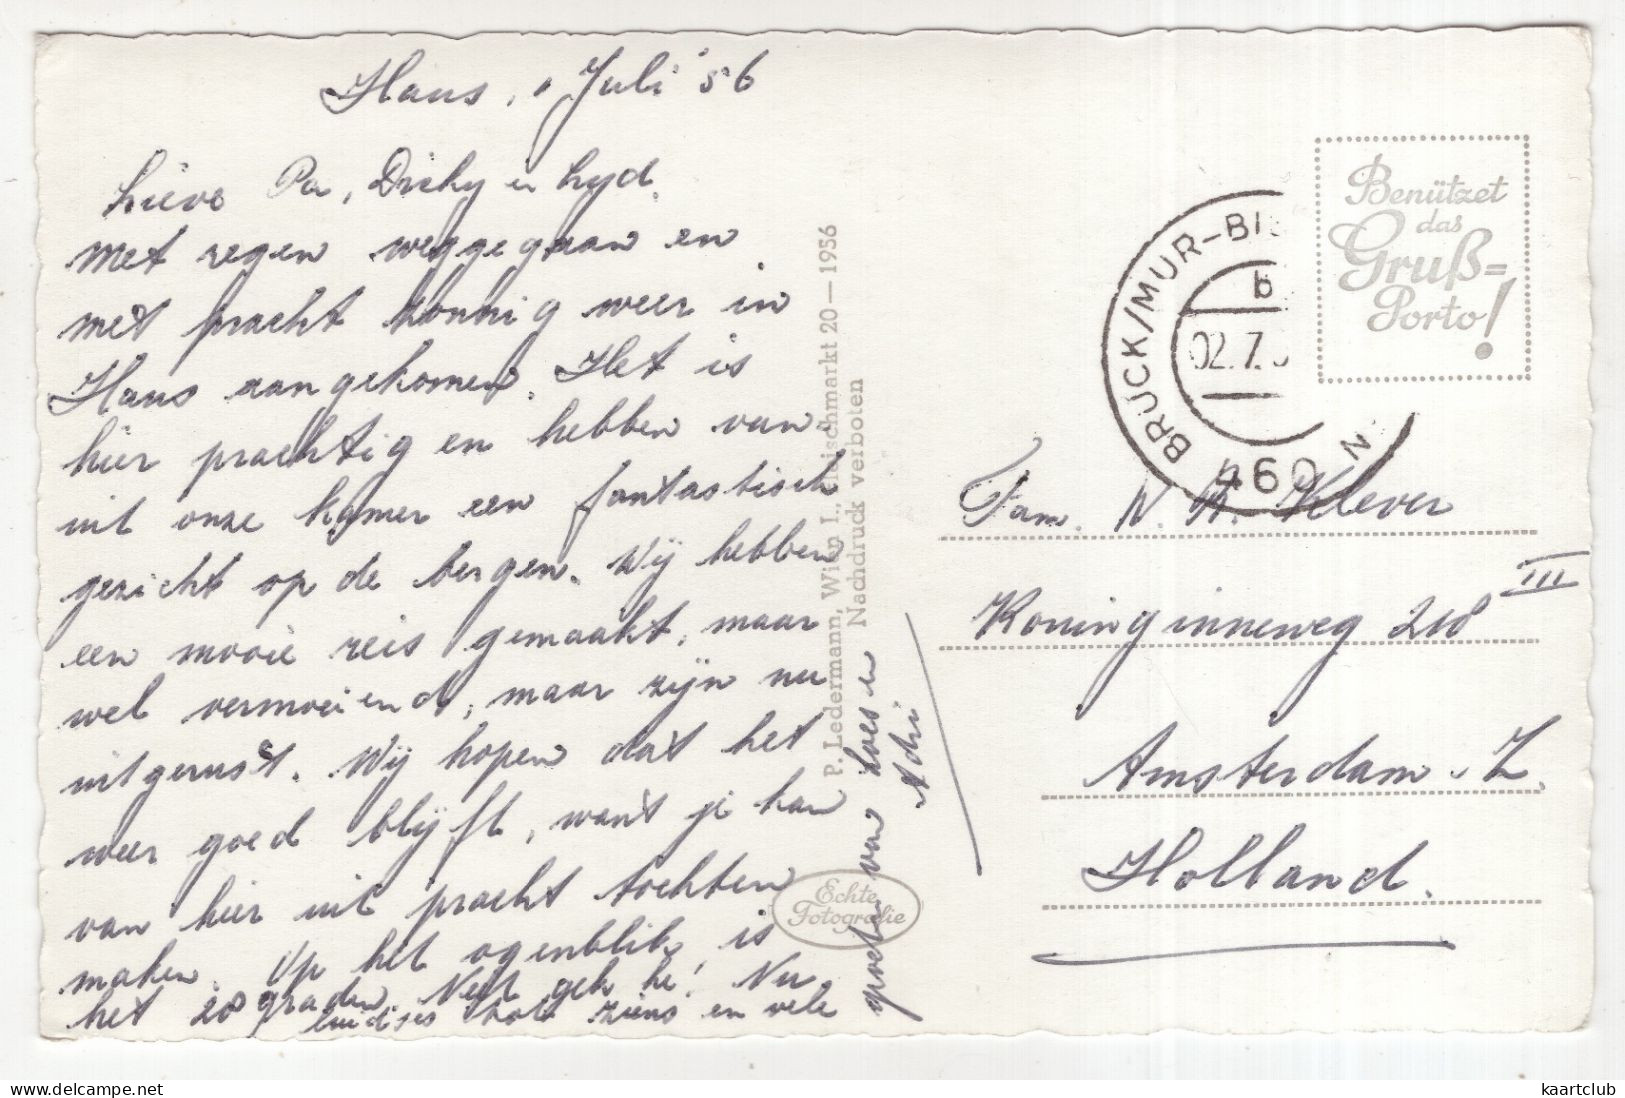 Haus, 1 Juli '56
Lieve Pa, Dicky en Lyd.
Met regen weggegaan en
met pracht zonnig weer in
Haus aangekomen. Het is
hier prachtig en hebben van-
uit onze kamer een fantastisch
gezicht op de bergen. Wij hebben
een mooie reis gemaakt, maar
wel vermoeiend, maar zijn nu
uitgerust. Wij hopen dat het
weer goed blijft, want je kan
van hier uit pracht tochten
maken. Op het ogenblik is
het 28 graden. Niet gek hè! Nu
luidjes tot ziens en vele
groeten van Loes en
Adri
P. Ledermann, Wien I., Fleischmarkt 20—1956
Nachdruck verboten
Echte
Fotografie
BRUCK/MUR-BI
b
02.7.5
Benützet
das
Gruß=
Porto!
Fam. N. Klever
Koninginneweg 218 III
Amsterdam. Z.
Holland.
www.delcampe.net
kaartclub